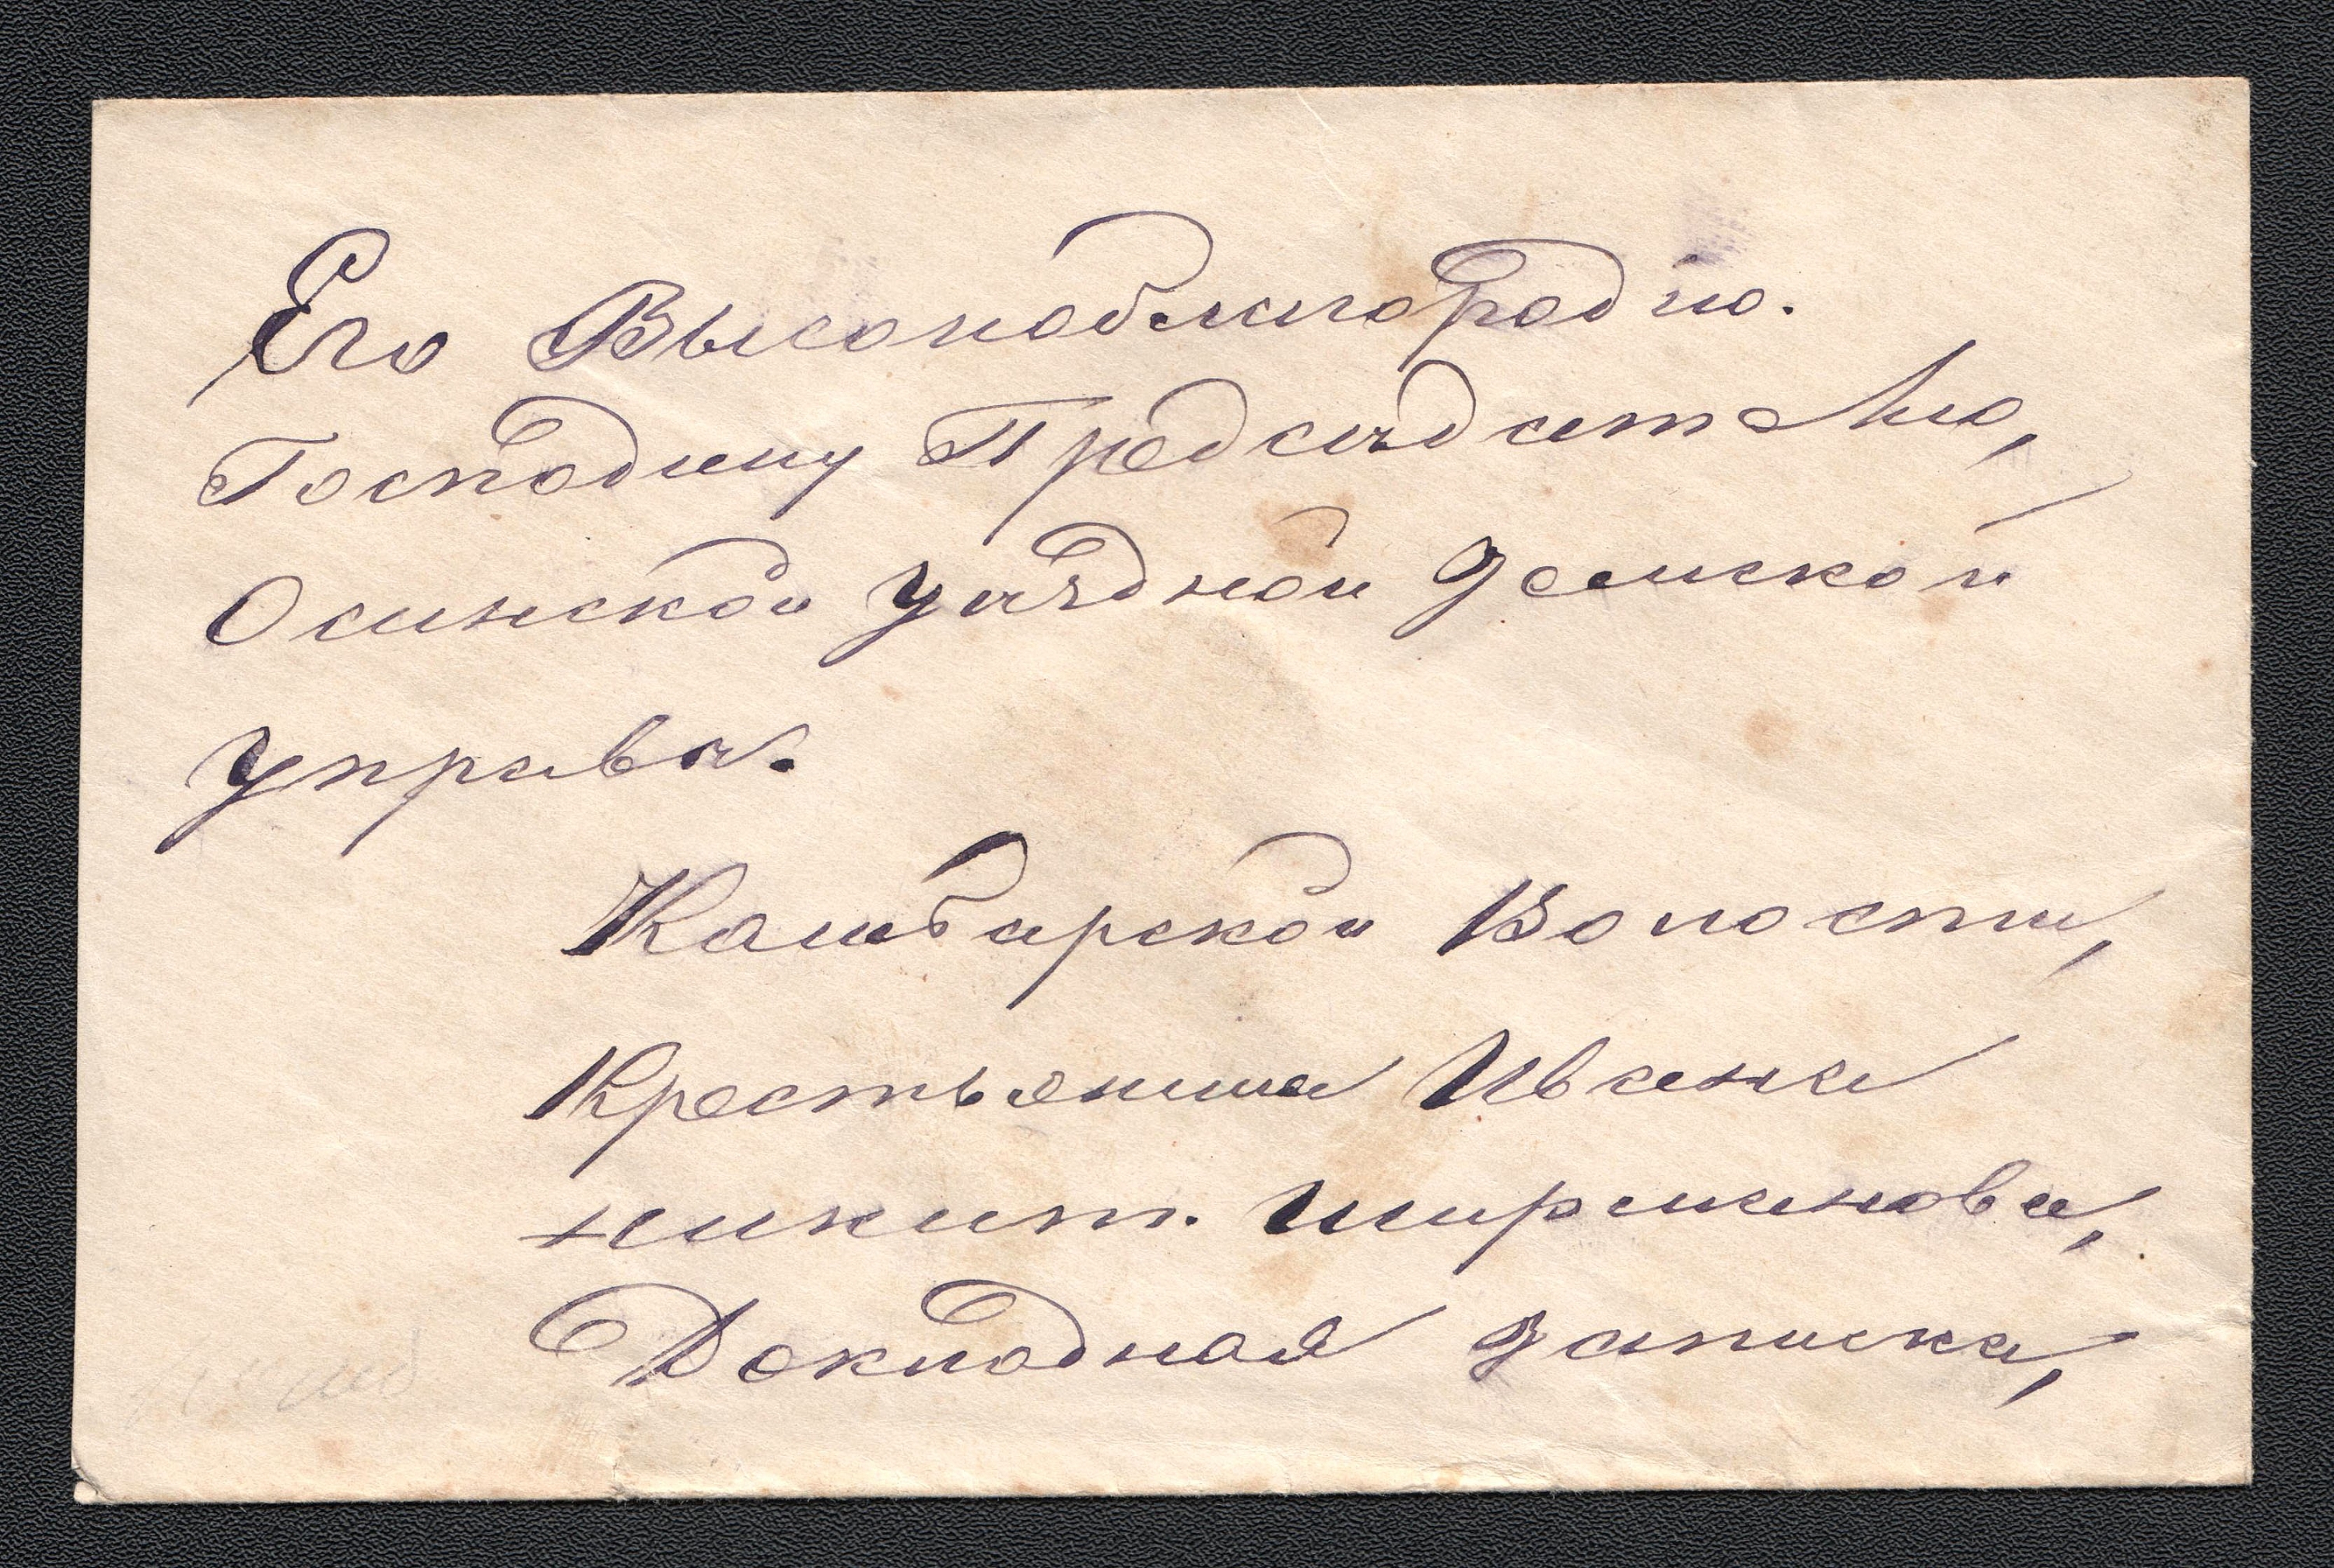 Его Высокоблагородию.
Господину Предсѣдателю,
Осинской Уѣздной Земской
Управы.
Камбарской Волости,
Крестьянина Ивана
Никит. Ширманова,
Докладная записка,